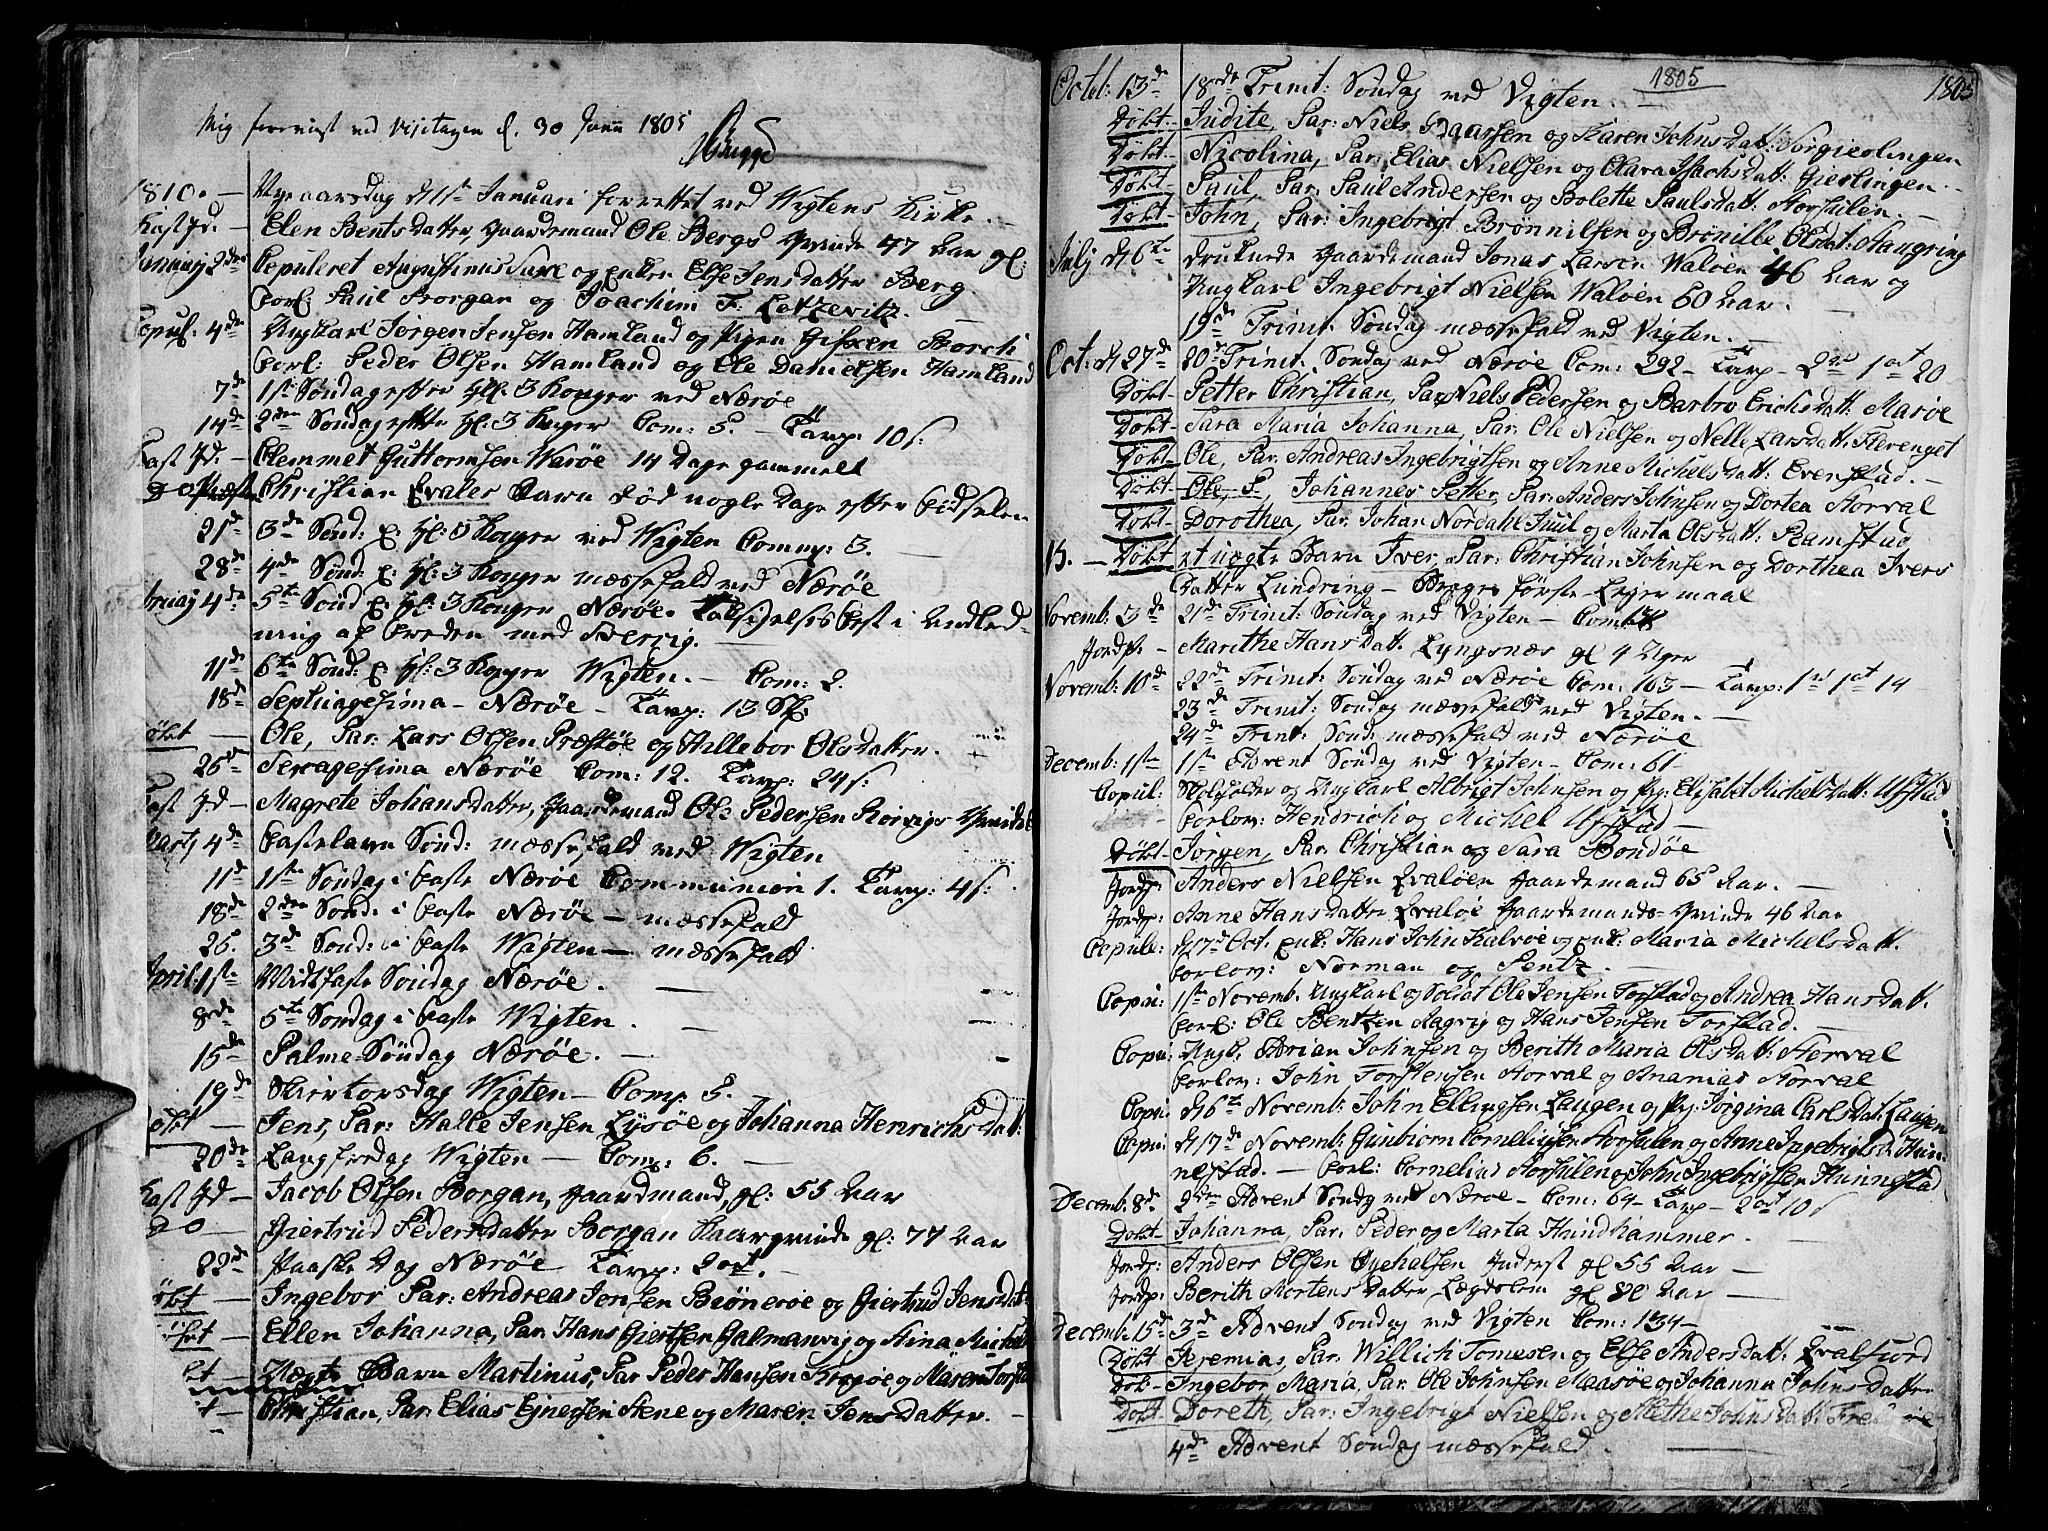 Mig foreviist ved Visitazen d. 30 Junii 1805
Bugge
1810. — Nyeaarsdag d 1ste Januari forrettet ved Wigtens Kirke. —
Kast Jd. — Elen Bentsdatter, Gaardemand Ole Bergs Qvinde 47 Aar gl:
Januarj 2den Copuleret Augustinus Saxe og Enken Else Jensdatter Berg
Forl: Paul Borgan og Joachim F. Letzevitz.
Copul. 4de Ungkarl Jørgen Jensen Hamland og Pigen Gifken Borch
Forl: Peder Olsen Hamland og Ole Danielsen Hamland
7de 1st Søndag efter Hl: 3 Konger ved Nærøe
14de 2den Søndag efter Hl: 3 Konger Com: 5. — Tavl: 10 s:
Kast Jd. — Clemmet Guttormsen Warøe 14 Dage gammelt
Christian Evales Barn død nogle Dage efter Fødselen
21de 3de Sønd: E. Hl: 3 Konger ved Wigten Comm: 3. —
28de 4de Sønd: E: Hl: 3 Konger messefald ved Nærøe
bruarj 4de 5te Sønd E: Hl: 3 Konger Nærøe. Taksigelsesfest i Anled-
ning af Freden med Sverrig. —
11de 6te Sønd: E Hl: 3 Konger Wigten. — Com: 2.
18de Septuagesima — Nærøe — Tavl: 13 Sk:
Døbt — Ole, Par: Lars Olsen Præstøe og Hillebor Olsdatter.
25de Sexagesima Nærøe Com: 12. Tavl: 24 s:
Kast Jd — Magrete Johansdatter, Gaardemand Ole Pedersen Rorvigs Qvinde
Marts 4de Fastelavn Sønd: messefald ved Wigten
11de 1ste Søndag i Faste Nærøe Communion 1. Tavl: 4 s:
18de 2den Sønd: i Faste Nærøe — messefald
25. 3de Sønd: i Faste Wigten — messefald
April: 1ste Midtfaste Søndag Nærøe. —
8de 5te Søndag i Faste Wigten. —
15de Palme-Søndag Nærøe. —
19de Skiertorsdag Wigten — Com: 5. —
Døbt — Jens, Par: Halle Jensen Lysøe og Johanna Henrichsdat:
20de Langfredag Wigten — Com: 6. —
Kast Jd — Jacob Olsen Borgan, Gaardmand, gl: 55 Aar
do — Giertrud Pedersdatter Borgan Kaarqvinde gl: 77 Aar
22de Paaske Dag Nærøe Tavl: 2 ort. —
Døbt — Ingebor Par: Andreas Jensen Biønerøe og Giertrud Jensdat:
Døbt — Ellen Johanna, Par: Hans Giertsen Galmanvig og Stina Michels
bt — Uægte Barn Martinus, Par Peder Hansen
t — Christian, Par: Elias Ejnersen Stene og Maren Jensdatter. —
1805 1805
Octob: 13de 18de Trinit: Søndag ved Vigten. —
Døbt. Judite, Par: Niels Baarsen og Karen Johnsdatt:
Døbt Nicolina, Par: Elias Nielsen og Clara Isachsdatt: Gieslingen —
Døbt Paul, Par: Paul Andersen og Bolette Paulsdatt: Horsulen. —
Døbt John, Par: Ingebrigt Brønnilsen og Brønille Olsdat:
Julj d 6te Druknede Gaardemand Jonas Larsen Waløen 46 Aar og
Ungkarl Ingebrigt Nielsen Waløen 60 Aar. —
19de Trinit: Søndag messefald ved Vigten. —
Oct: d 27de 20de Trinit. Søndag ved Nærøe Com: 292 — Tavl — 2 1 ort 20
Døbt Petter Christian, Par: Niels Pedersen og Barbro Erichsdatt: Marøe
Døbt Sara Maria Johanna, Par: Ole Nielsen og Nelle Larsdatt: Flerenget
Døbt Ole, Par. Andreas Ingebrigtsen og Anne Michelsdatt: Evenstad. —
Døbt Ole, P, Johannes Petter, Par: Anders Johnsen og Dortea Horval
Døbt Dorothea, Par. Johan Nordahl Juul og Marta Olsdatt: Ramstad
15. — Døbt et uægte Barn Iver, Par: Christian Johnsen og Dorthea Ivers
Datter Lundring — Beges første Leyermaal
Novemb: 3de 21de Trinit: Søndag ved Vigten — Com:
Jordf. — Marithe Hansdatt. Lyngsnæs gl 4 Uger
Novemb: 10de 22de Trinit. Søndag ved Nærøe Com: 163 — Tavl: 1 1 ort 14
23de Trinit: Søndag messefald ved Vigten. —
24de Trinit: Sønd: messefald ved Nærøe
Decemb: 1ste 1ste Advent Søndag ved Vigten — Com: 61
Copul: Skolholder og Ungkarl Albrigt Johnsen og Pig: Elisabet Michelsdatt: Ufstad
Forlov: Hendrich og Michel Ufstad —
Døbt Jørgen, Par. Christian og Sara Bondøe
Jordf: Anders Nielsen Evaløen Gaardemand 65 Aar. —
Jordf: Anne Hansdatter Evaløe Gaardemands-Qvinde 46 Aar
Copule: d 17de Oct. Enk: Hans John Kalvøe og Enk: Maria Michelsdatt.
Forlov: Norman og Pentz. —
Copu: 1ste Novemb. Ungkarl og Soldat Ole Jensen Torstad og Andrea Hansdatt.
Forl: Ole Bentzen Aagvig og Hans Jensen Torstad. —
Copu: Ungk. Adrian Johnsen og Berith Maria Olsdatt: Horval
Forlov: John Torstensen Horval og Ananias Horval
Copu: d 6te Novemb: John Ellingsen Laugen og Pig: Jørgina Carlsdat: Laugen
Copu: d 17de Novemb: Gunbiorn Corneliusen Horsulen og Anne Ingebrigtsd: Hun-
nestad. — Forl: Cornelius Horsulen og John Ingebrigtsen Hunnestad
Decemb: 8de 2den Advent Søndag ved Nærøe — Com: 64 — Tavl — 2 ort 10 s
Døbt Johanna, Par: Peder og Marta Hundhammer. —
Jordf: Anders Olsen Øyehalsen Inderst gl 55 Aar —
Jordf: Berith Mortensdatter Lægdslem gl 80 Aar —
Decemb: 15de 3de Advent Søndag ved Vigten Com: 134 —
Døbt Jeremias, Par: Willich Tomesen og Else Andersdatt: Evalfiord
Døbt Ingebor Maria, Par. Ole Johnsen Maasøe og Johanna Johnsdatter
Døbt Doreth, Par: Ingebrigt Nielsen og Methe Johnsdatt:
4de Advent Søndag messefald. —